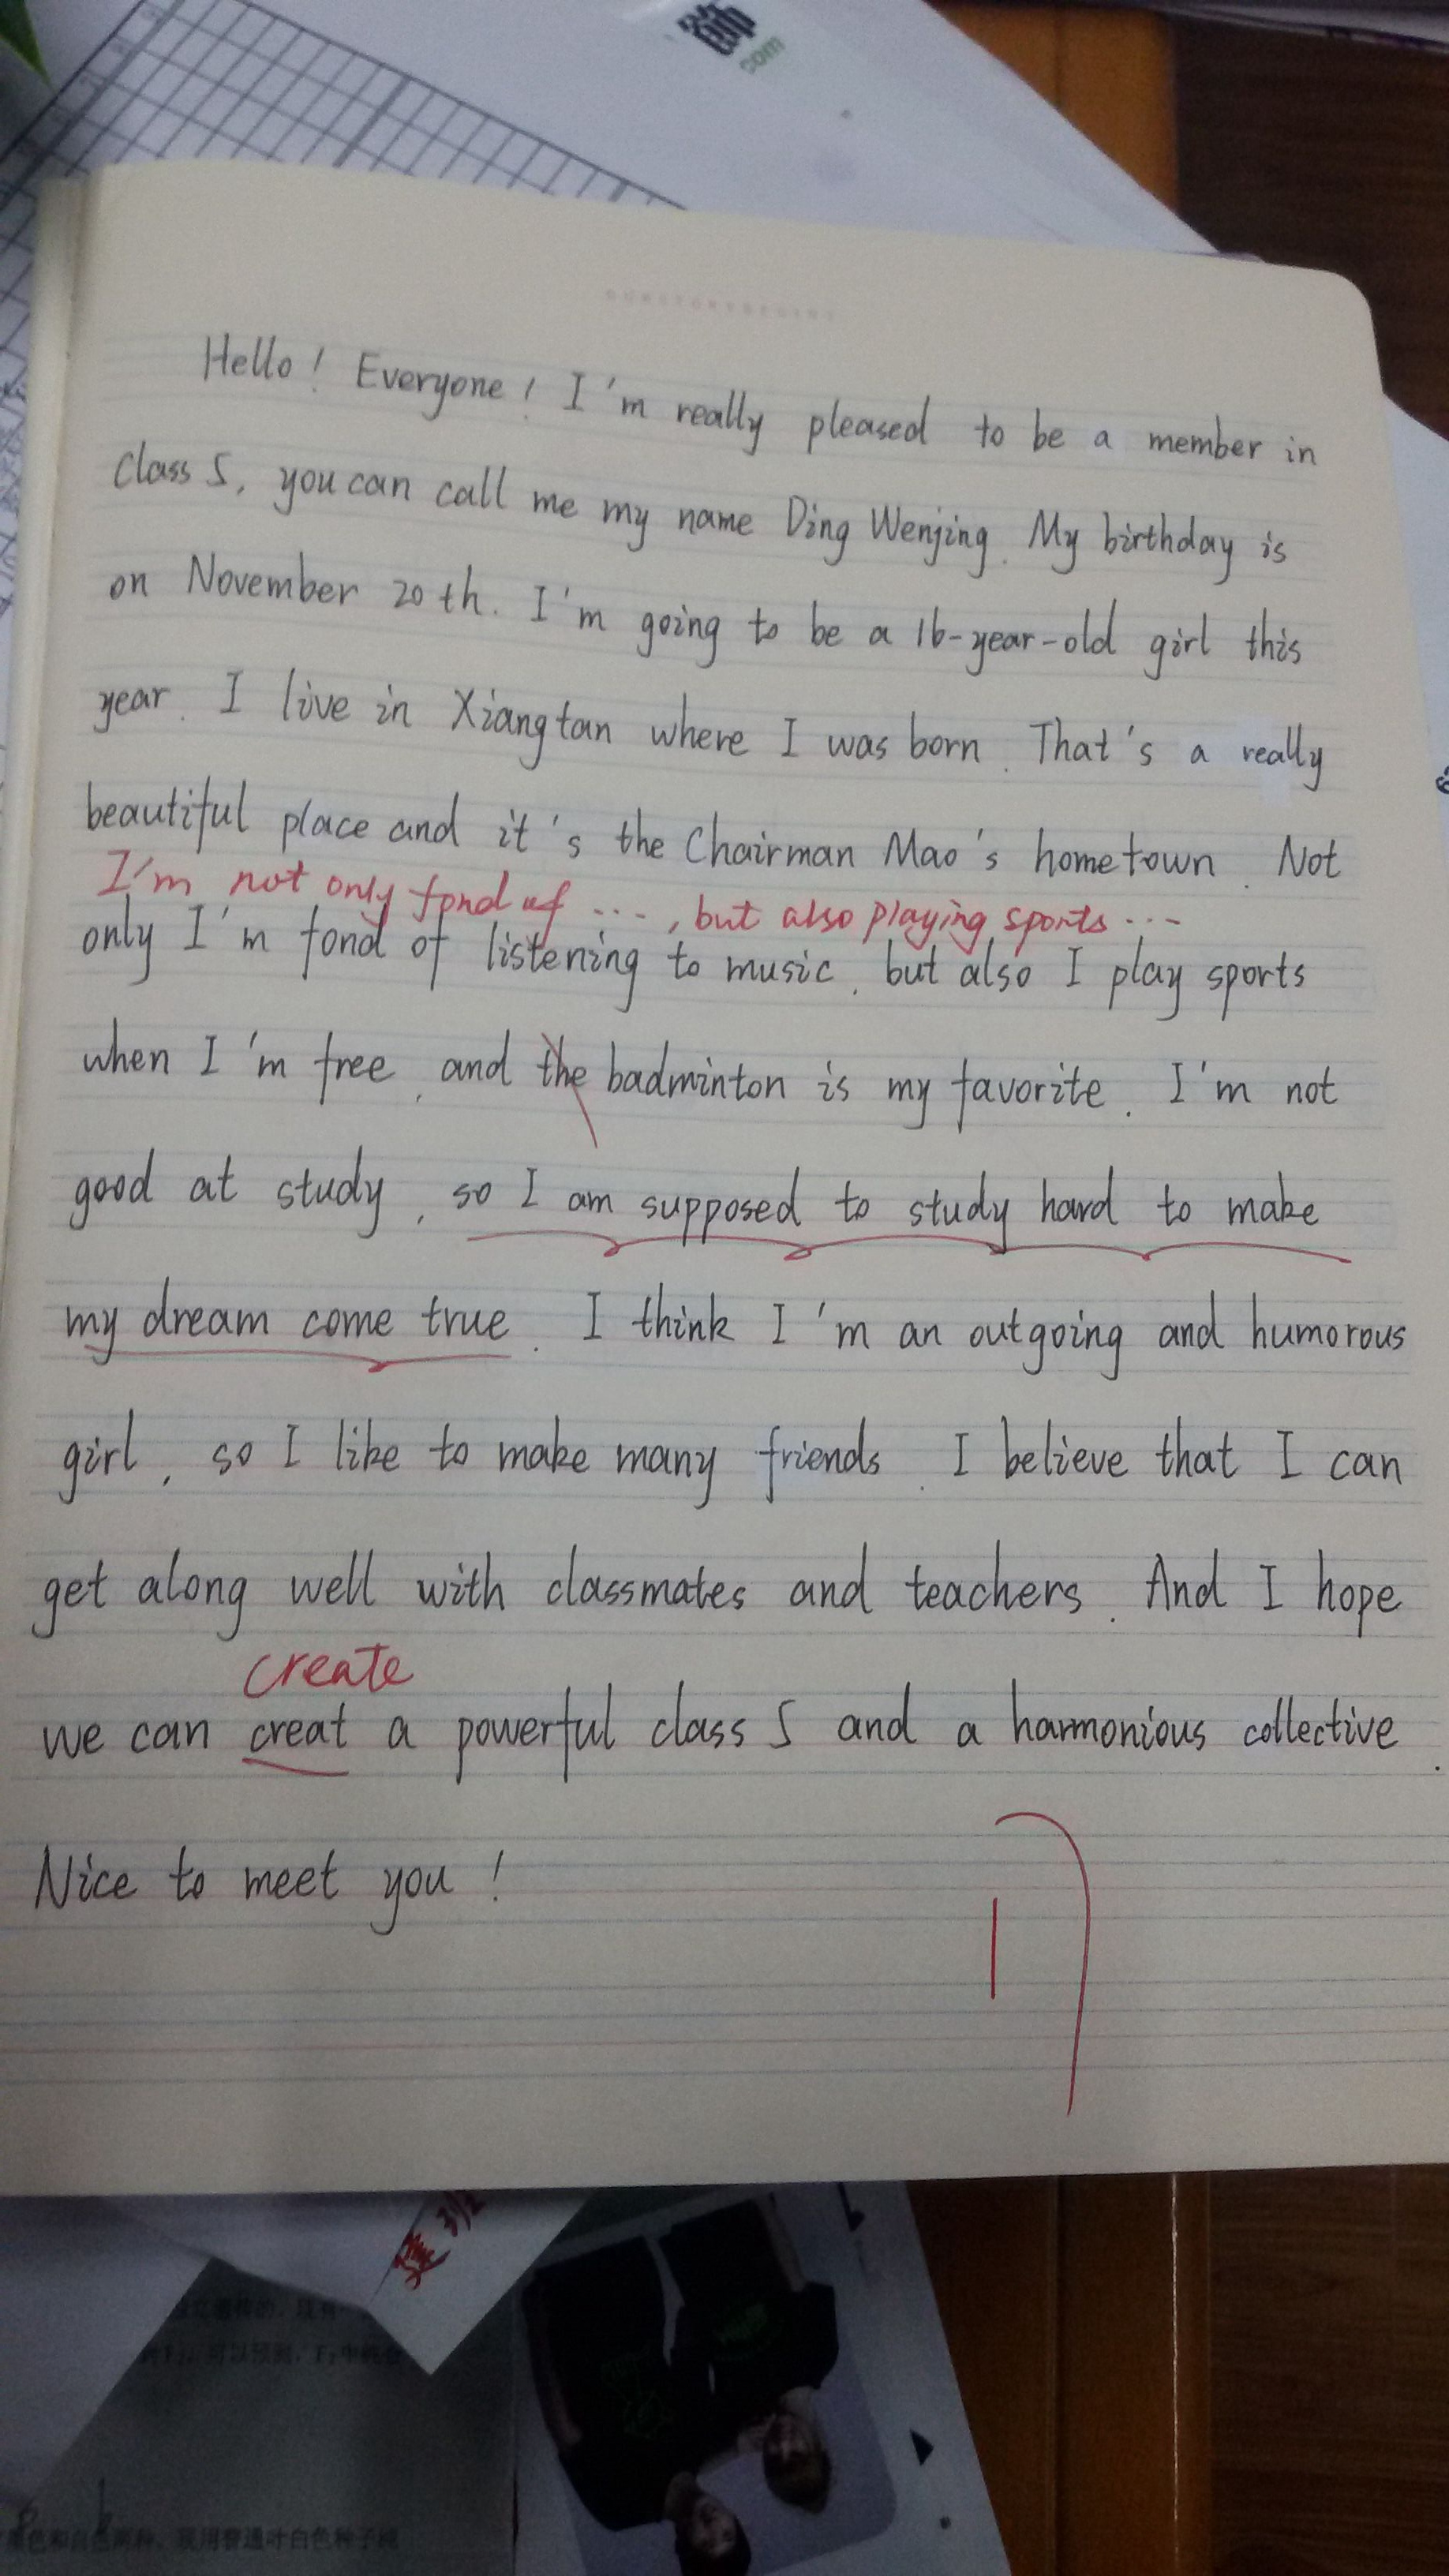 com
Hello! Everyone! I'm really pleased to be a member in
class 5, you can call me my name Ding Wenjing. My birthday is
on November 20th. I'm going to be a 16-year-old girl this
year. I live in Xiangtan where I was born. That's a really
beautiful place and it's the Chairman Mao's hometown. Not
I'm not only fond of ..., but also playing sports ...
only I'm fond of listening to music, but also I play sports
when I'm free, and the badminton is my favorite. I'm not
good at study, so I am supposed to study hard to make
my dream come true. I think I'm an outgoing and humorous
girl, so I like to make many friends. I believe that I can
get along well with classmates and teachers. And I hope
create
we can creat a powerful class 5 and a harmonious collective.
Nice to meet you!
17